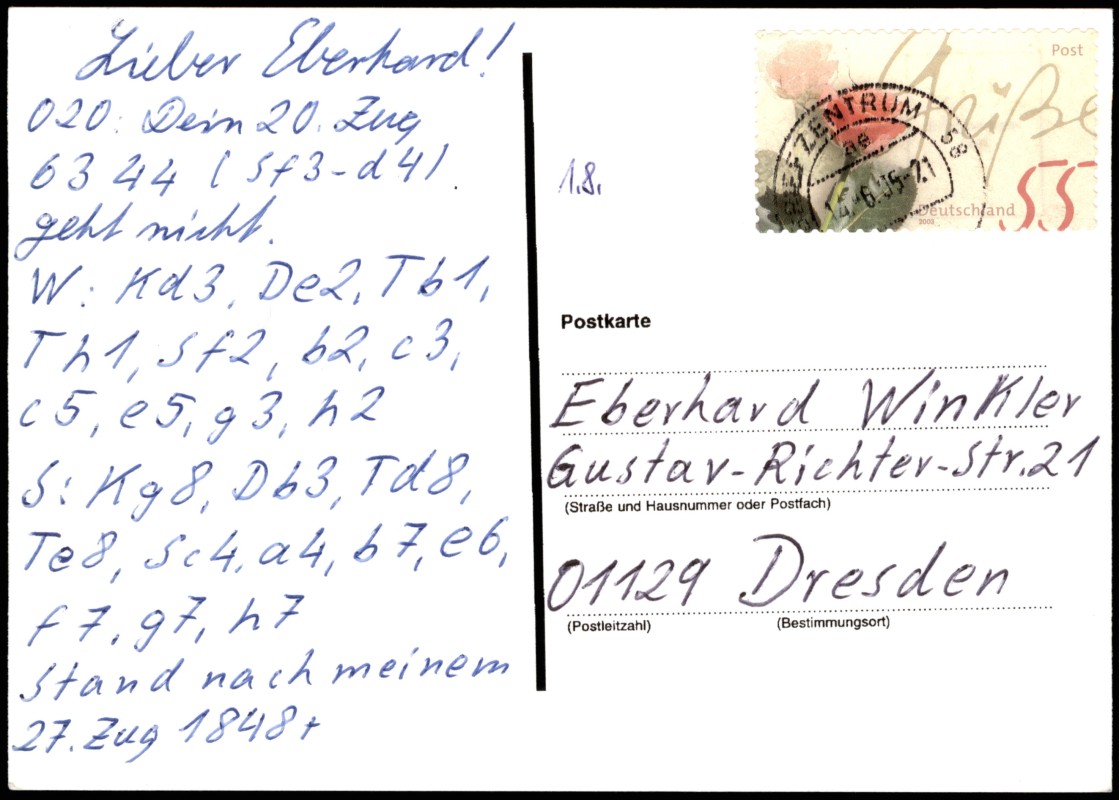 Lieber Eberhard!
020: Dein 20. Zug
6344 (Sf3-d4)
geht nicht.
W: Kd3, De2, Tb1,
Th1, Sf2, b2, c3,
c5, e5, g3, h2
S: Kg8, Db3, Td8,
Te8, Sc4, a4, b7, e6,
f7, g7, h7
Stand nach meinem
27. Zug 1848+
1.8.
Post
Grüße
BRIEFZENTRUM 58
-21
Deutschland
55
Postkarte
Eberhard Winkler
Gustav-Richter-Str.21
(Straße und Hausnummer oder Postfach)
01129 Dresden
(Postleitzahl) (Bestimmungsort)